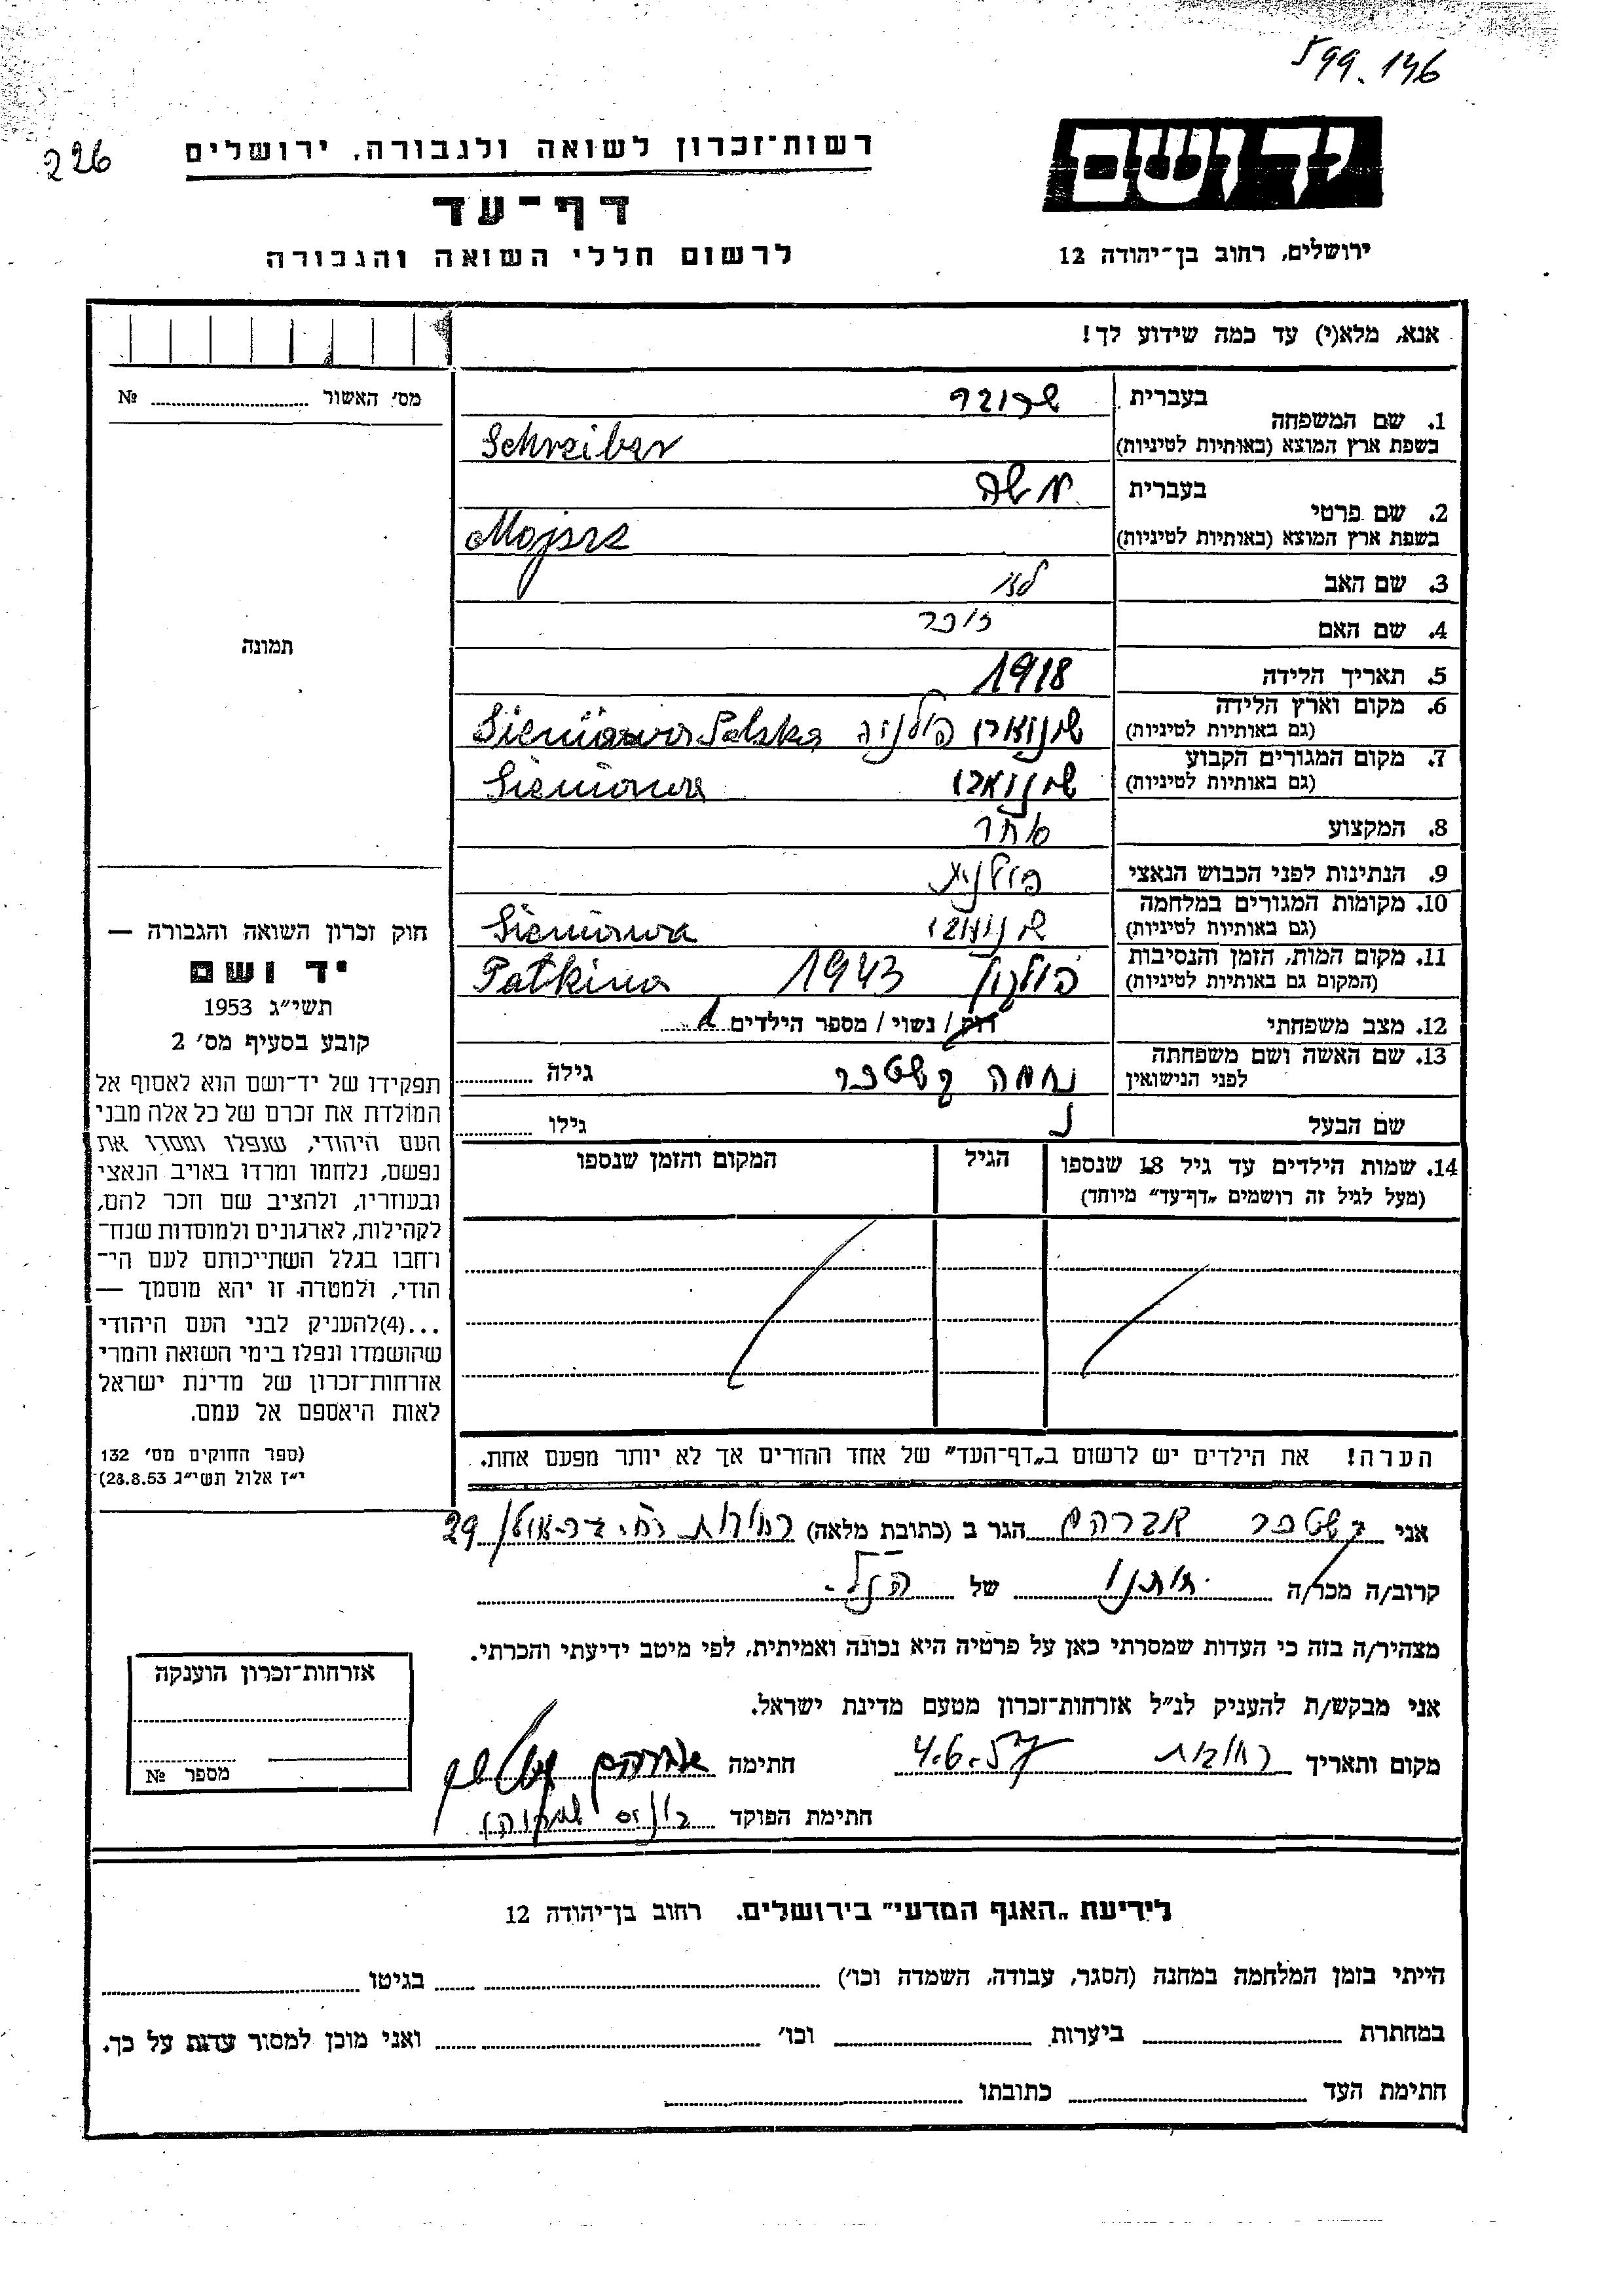 599.146
226
רשות־זכרון לשואה ולגבורה, ירושלים
יד ושם
דף־עד
לרשום חללי השואה והגבורה
ירושלים, רחוב בן־יהודה 12
אנא, מלא(י) עד כמה שידוע לך!
מס׳ האשור № ........
1. שם המשפחה
בעברית שרובר
בשפת ארץ המוצא (באותיות לטיניות) Schreiber
2. שם פרטי
בעברית משה
בשפת ארץ המוצא (באותיות לטיניות) Mojsze
3. שם האב
4. שם האם
תמונה
5. תאריך הלידה 1918
6. מקום וארץ הלידה
(גם באותיות לטיניות) פולניה Sieniawa Polska
7. מקום המגורים הקבוע
(גם באותיות לטיניות) Sieniawa
8. המקצוע סוחר
9. הנתינות לפני הכבוש הנאצי פולנית
10. מקומות המגורים במלחמה
(גם באותיות לטיניות) Sieniawa
11. מקום המות, הזמן והנסיבות
(המקום גם באותיות לטיניות) 1943 Patkina
12. מצב משפחתי רוק / נשוי / מספר הילדים 1
13. שם האשה ושם משפחתה
לפני הנישואין נחמה גילה ........
שם הבעל גילו ........
14. שמות הילדים עד גיל 18 שנספו
(מעל לגיל זה רושמים „דף־עד״ מיוחד)
הגיל
המקום והזמן שנספו
הערה! את הילדים יש לרשום ב„דף־העד״ של אחד ההורים אך לא יותר מפעם אחת.
חוק זכרון השואה והגבורה —
יד ושם
תשי״ג 1953
קובע בסעיף מס׳ 2
תפקידו של יד־ושם הוא לאסוף אל
המולדת את זכרם של כל אלה מבני
העם היהודי, שנפלו ומסרו את
נפשם, נלחמו ומרדו באויב הנאצי
ובעוזריו, ולהציב שם וזכר להם,
לקהילות, לארגונים ולמוסדות שנח־
רחבו בגלל השתייכותם לעם הי־
הודי, ולמטרה זו יהא מוסמך —
...(4)להעניק לבני העם היהודי
שהושמדו ונפלו בימי השואה והמרי
אזרחות־זכרון של מדינת ישראל
לאות היאספם אל עמם.
(ספר החוקים מס׳ 132
י״ז אלול תשי״ג 28.8.53)
אני אברהם הגר ב (כתובת מלאה) רחובות רח׳ 29
קרוב/ה מכר/ה חותנו של הנ״ל
מצהיר/ה בזה כי העדות שמסרתי כאן על פרטיה היא נכונה ואמיתית, לפי מיטב ידיעתי והכרתי.
אני מבקש/ת להעניק לנ״ל אזרחות־זכרון מטעם מדינת ישראל.
מקום ותאריך רחובות 4.6.57 חתימה אברהם
חתימת הפוקד
אזרחות־זכרון הוענקה
מספר №
לידיעת „האגף המדעי״ בירושלים. רחוב בן־יהודה 12
הייתי בזמן המלחמה במחנה (הסגר, עבודה, השמדה וכו׳) ........ בגיטו ........
במחתרת ........ ביערות ........ וכו׳ ........ ואני מוכן למסור עדות על כך.
חתימת העד ........ כתובתו ........